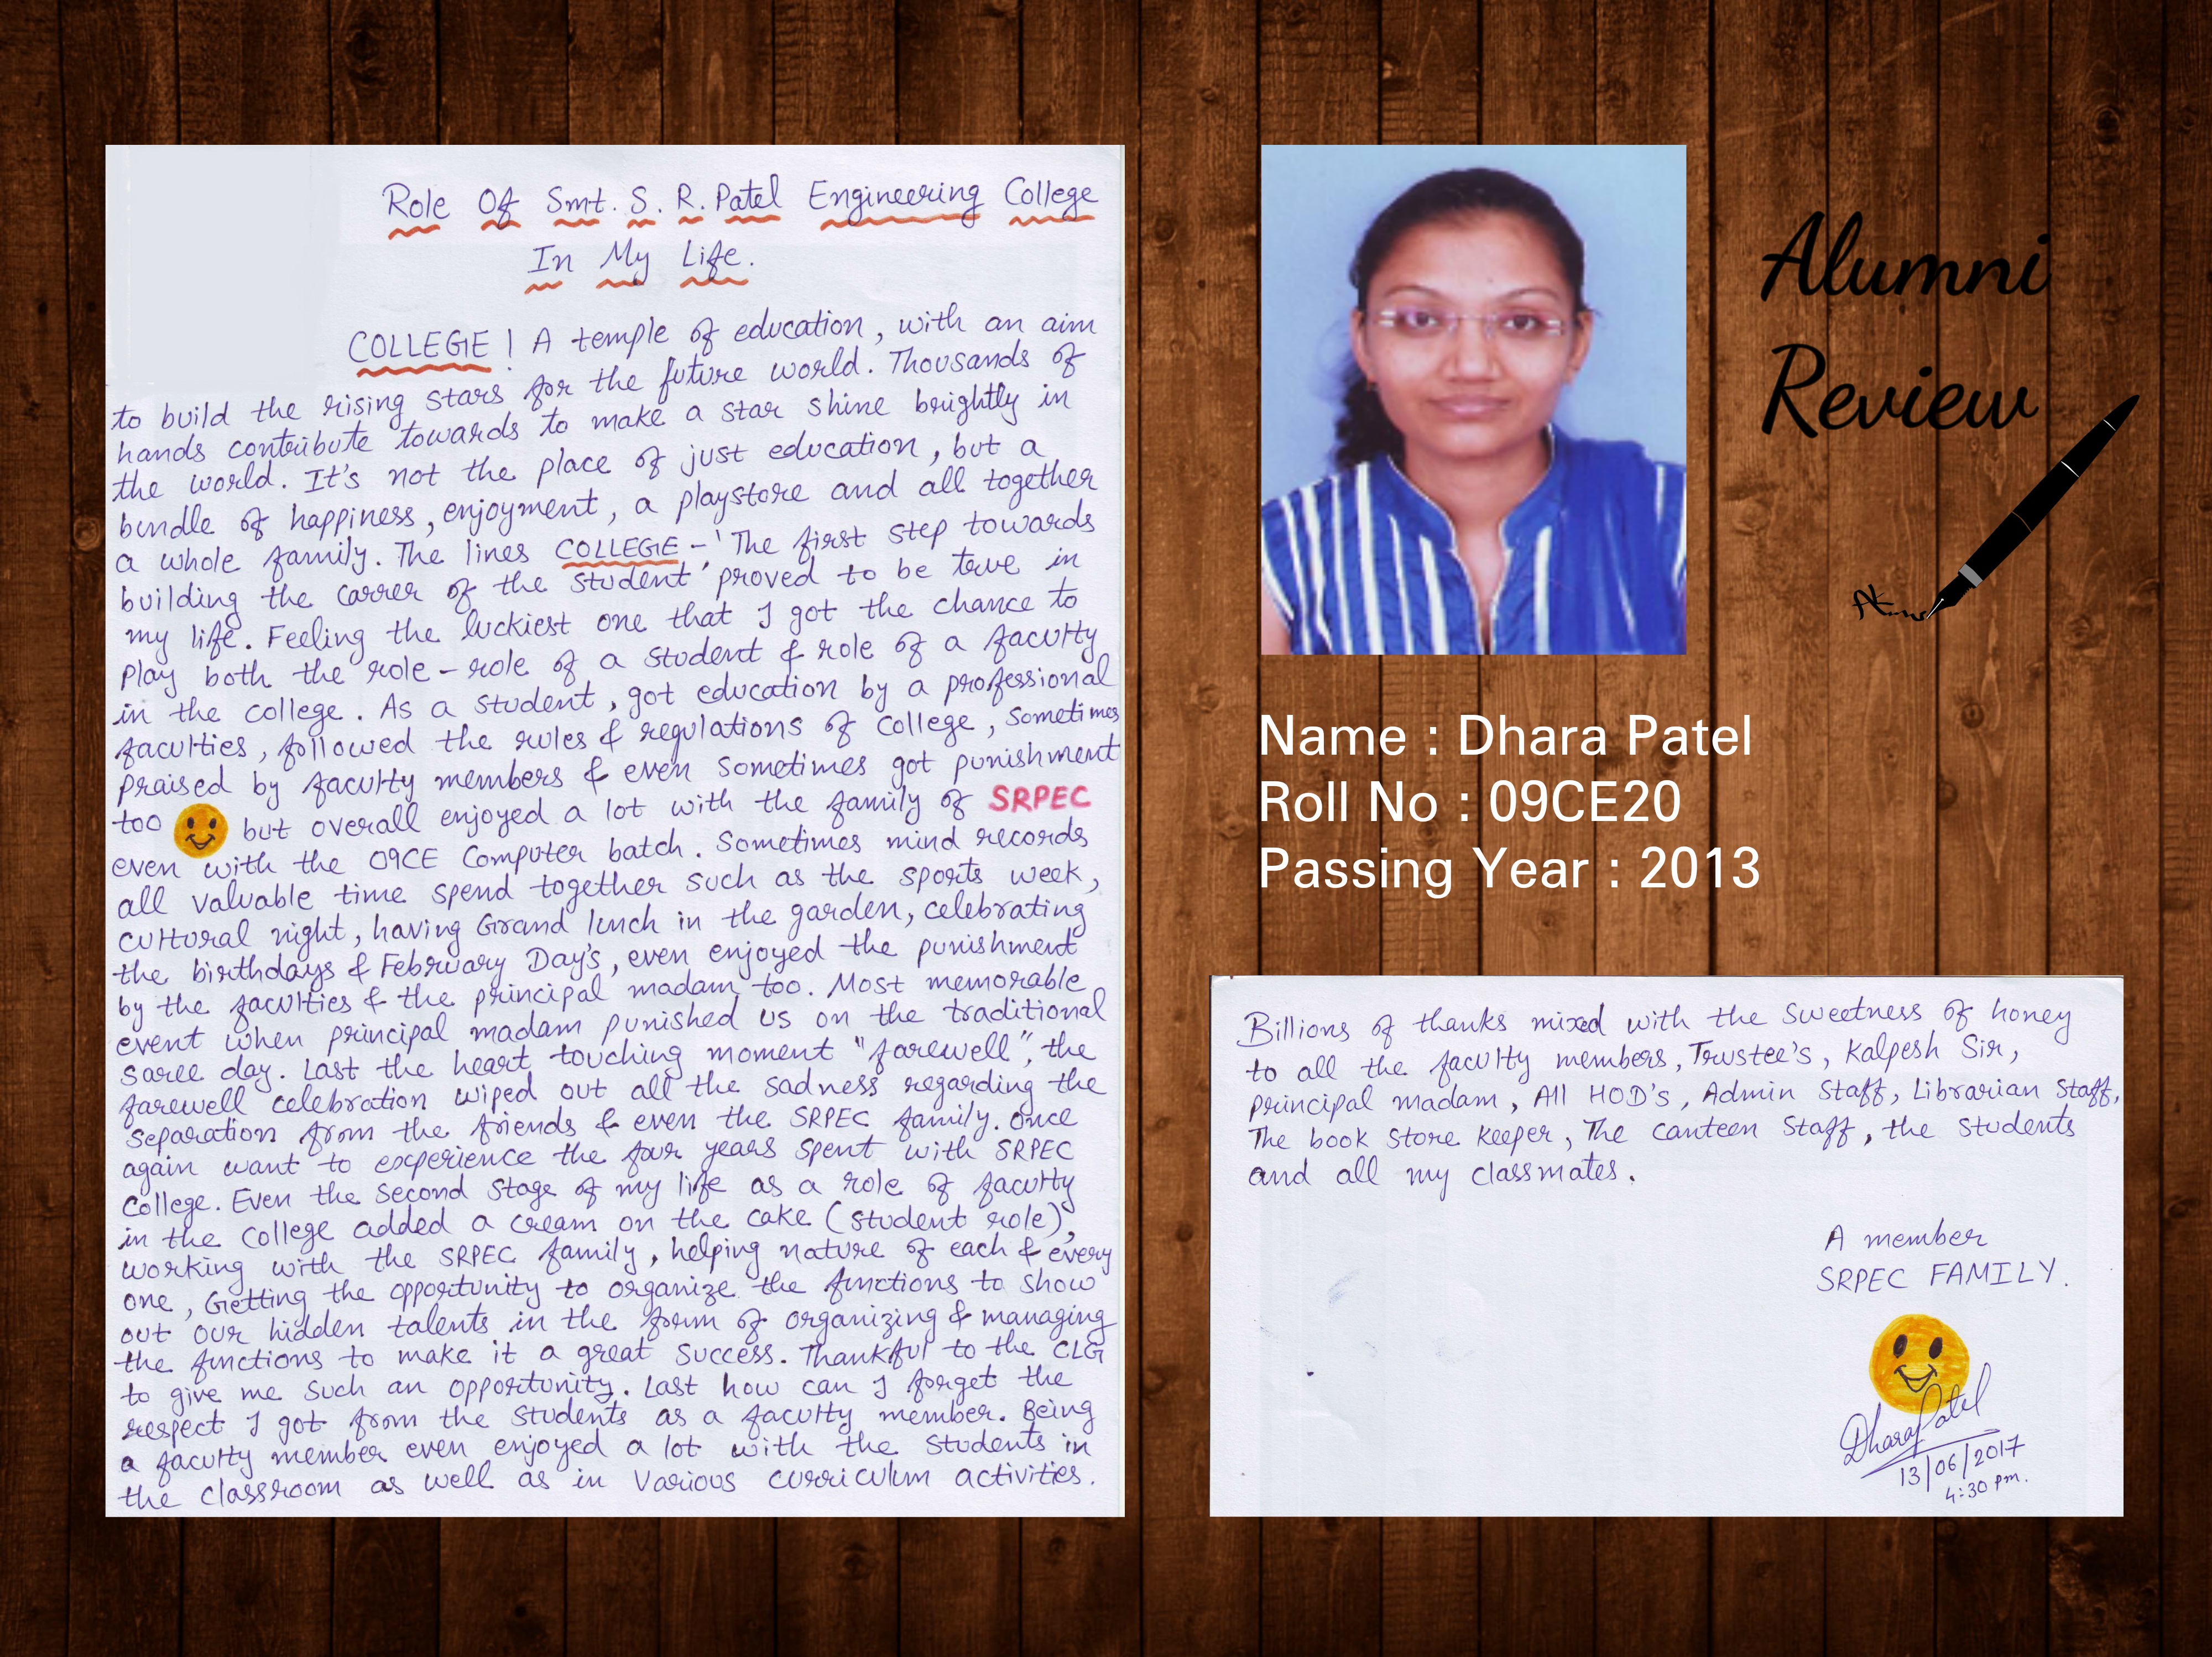 Role Of Smt. S. R. Patel Engineering College
In My Life.
COLLEGE! A temple of education, with an aim
to build the rising stars for the future world. Thousands of
hands contribute towards to make a star shine brightly in
the world. It's not the place of just education, but a
bundle of happiness, enjoyment, a playstore and all together
a whole family. The lines COLLEGE - 'The first step towards
building the carrer of the student' proved to be true in
my life. Feeling the luckiest one that I got the chance to
play both the role - role of a student & role of a faculty
in the college. As a student, got education by a professional
faculties, followed the rules & regulations of college, sometimes
praised by faculty members & even sometimes got punishment
too but overall enjoyed a lot with the family of SRPEC
even with the 09CE Computer batch. Sometimes mind records
all valuable time spend together such as the sports week,
cultural night, having Grand lunch in the garden, celebrating
the birthdays & February Day's, even enjoyed the punishment
by the faculties & the principal madam too. Most memorable
event when principal madam punished us on the traditional
saree day. Last the heart touching moment "farewell", the
farewell celebration wiped out all the sadness regarding the
separation from the friends & even the SRPEC family. Once
again want to experience the four years spent with SRPEC
College. Even the second stage of my life as a role of faculty
in the college added a cream on the cake (student role),
working with the SRPEC family, helping nature of each & every
one, Getting the opportunity to organize the functions to show
out our hidden talents in the form of organizing & managing
the functions to make it a great success. Thankful to the CLG
to give me such an opportunity. Last how can I forget the
respect I got from the students as a faculty member. Being
a faculty member even enjoyed a lot with the students in
the classroom as well as in various curriculum activities.
Alumni
Review
Name : Dhara Patel
Roll No : 09CE20
Passing Year : 2013
Billions of thanks mixed with the sweetness of honey
to all the faculty members, Trustee's, Kalpesh Sir,
principal madam, All HOD's, Admin Staff, Librarian Staff,
The book store keeper, The canteen staff, the students
and all my classmates.
A member
SRPEC FAMILY.
Dhara Patel
13/06/2017
4:30 pm.